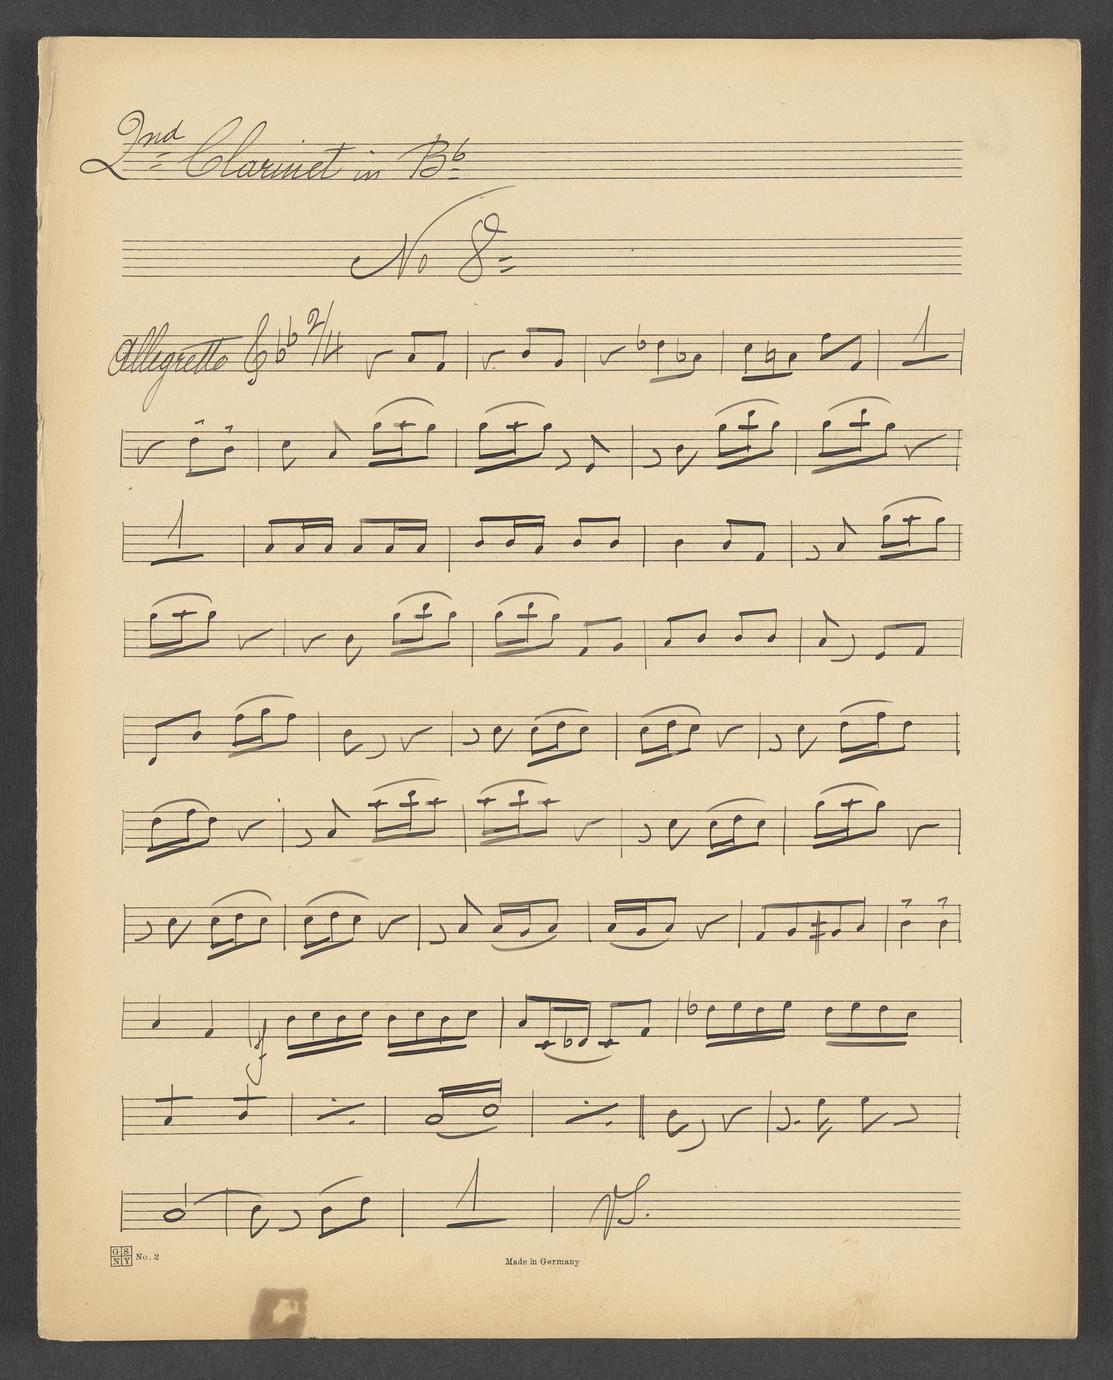 2nd Clarinet in Bb
No 8
Allegretto 2/4
1
1
f
1
V.S.
GS
NY No. 2
Made in Germany